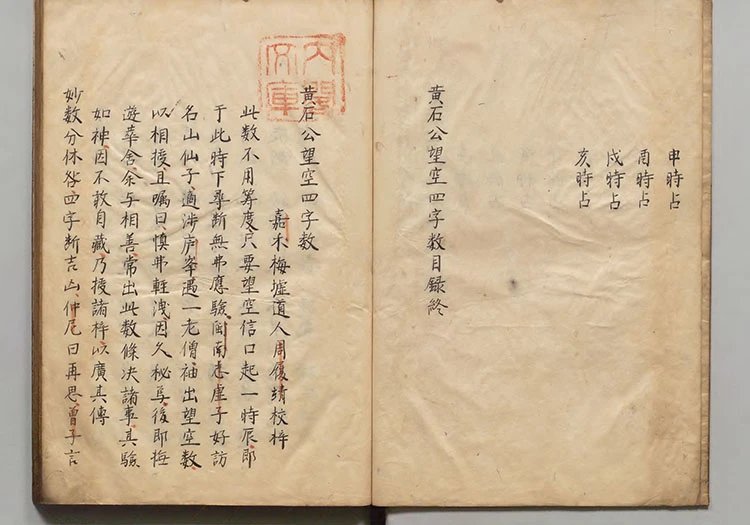 申時占
酉時占
戌時占
亥時占
黃石公望空四字數目録終
內閣
文庫
黃石公望空四字數
嘉禾梅墟道人周履靖校梓
此数不用筭度只要望空信口起一時辰即
于此時下尋断無弗應驗閩南志虛子好訪
名山仙子適涉庐峯遇一老僧袖出望空数
以相授且嘱曰慎弗軽洩因久秘焉後即梅
遊華舍余与相善常出此数條决諸事其驗
如神因不敢自藏乃授諸梓以廣其傳
妙数分休咎四字断吉凶仲尼曰再思曾子言